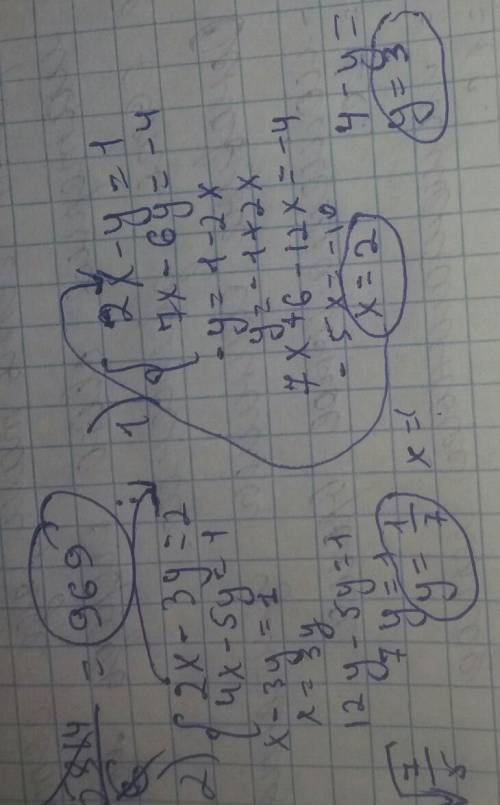 = 969
1) { 2x - y = 1
7x - 6y = -4
- y = 1 - 2x
y = - 1 + 2x
7x + 6 - 12x = -4
- 5x = -10
x = 2
4 - y =
y = 3
2) { 2x - 3y = 2
4x - 5y = 1
x - 3y = 1
x = 3y
12y - 5y = 1
7y = 1
y = 1/7
x =